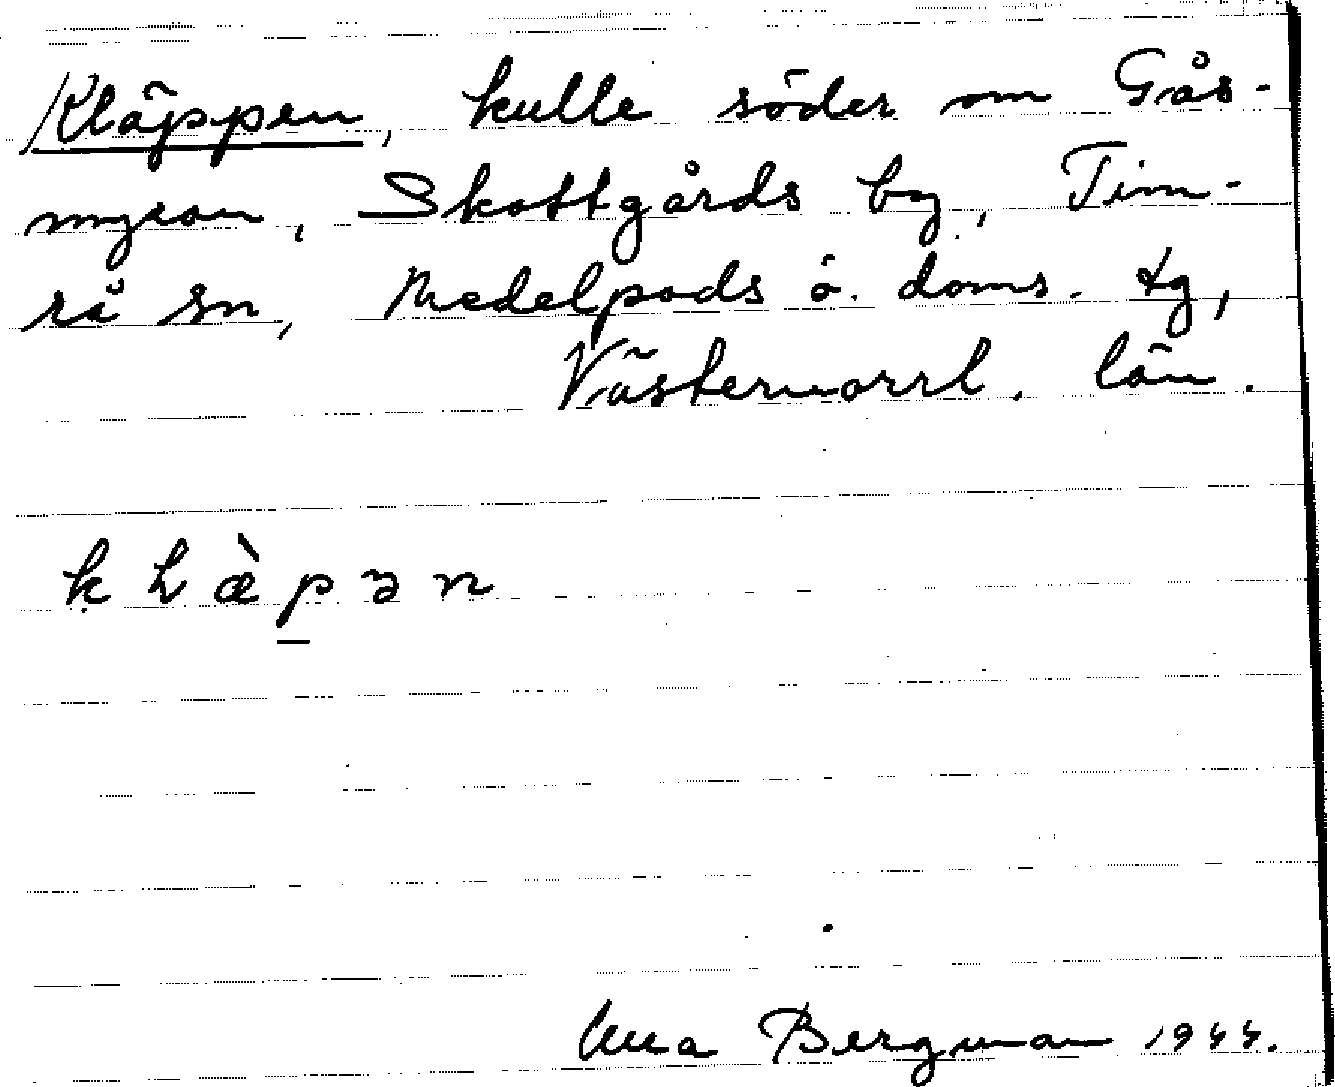 Kläppen, kulle söder om Gås-
myran, Skottgårds by, Tim-
rå sn, Medelpads ö. doms. tg,
Västernorrl. län.
k l æ̀ p ə n
Bergman 1944.